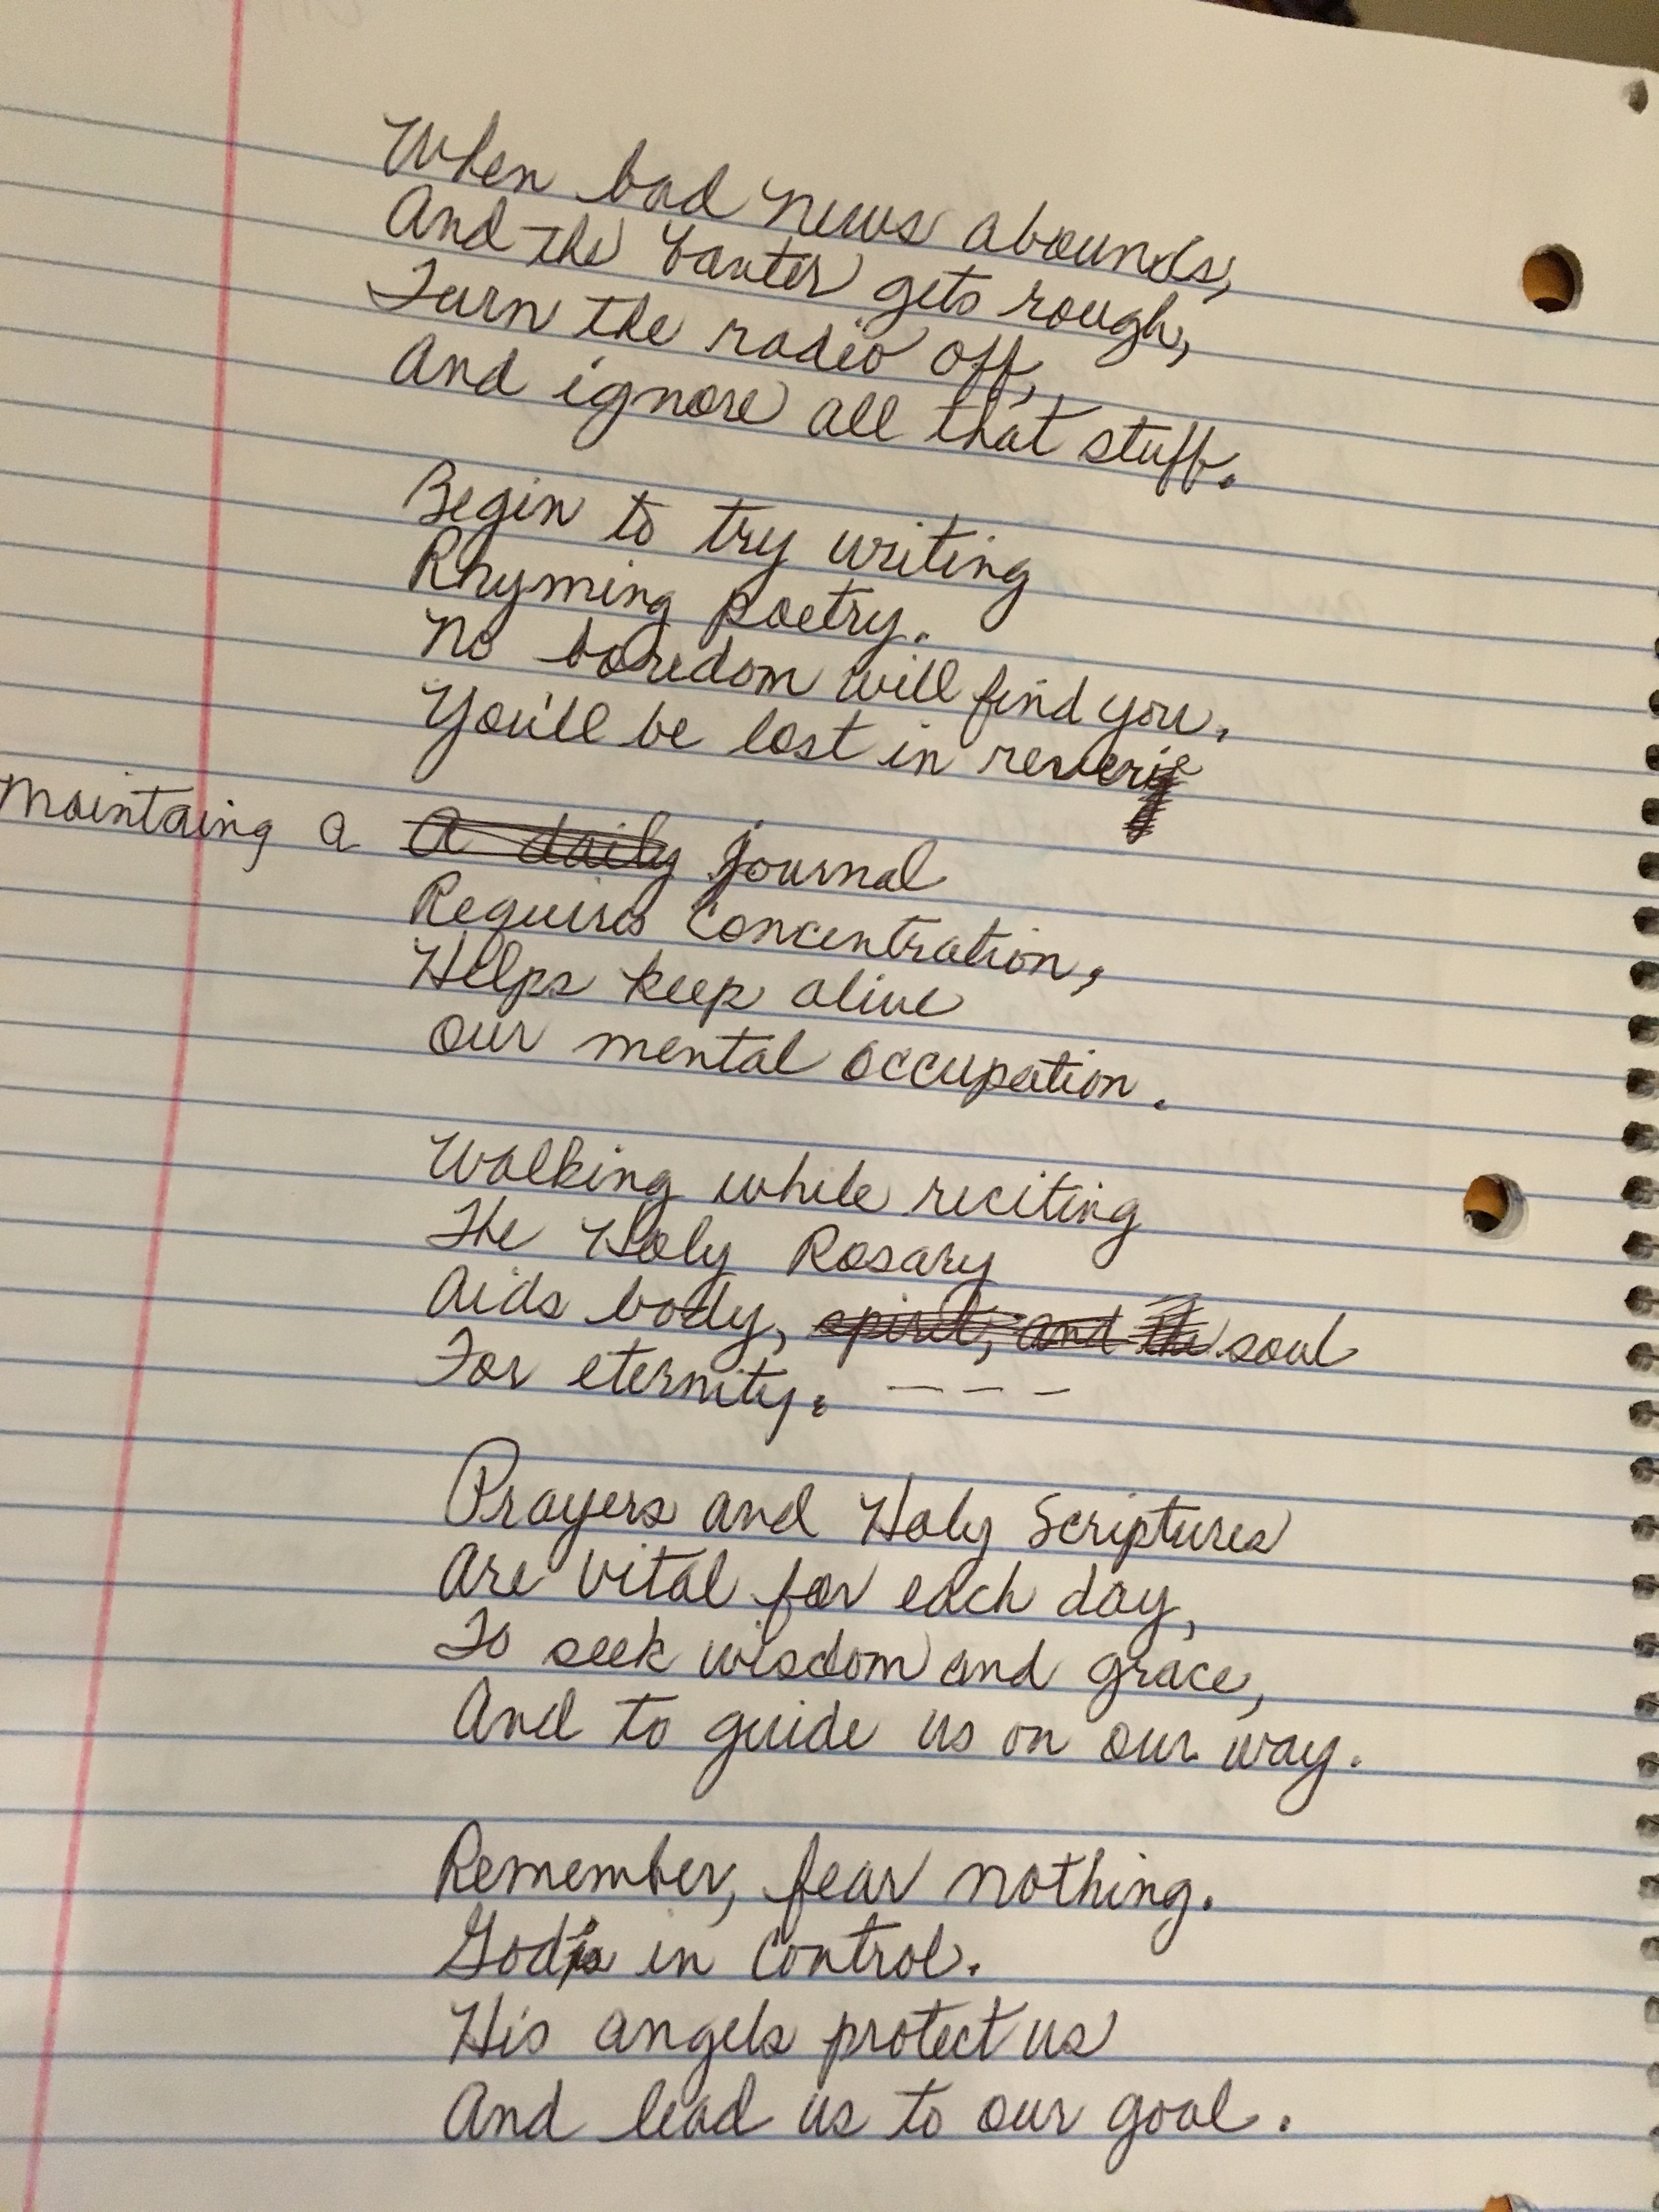 When bad news abounds,
And the banter gets rough,
Turn the radio off,
And ignore all that stuff.
Begin to try writing
Rhyming poetry.
No boredom will find you.
You'll be lost in reverie
Maintaing a A daily journal
Requires concentration,
Helps keep alive
Our mental occupation.
Walking while reciting
The Holy Rosary
Aids body, spirit, and the soul
For eternity. - - -
Prayers and Holy Scriptures
Are vital for each day,
To seek wisdom and grace,
And to guide us on our way.
Remember, fear nothing.
God is in control.
His angels protect us
And lead us to our goal.